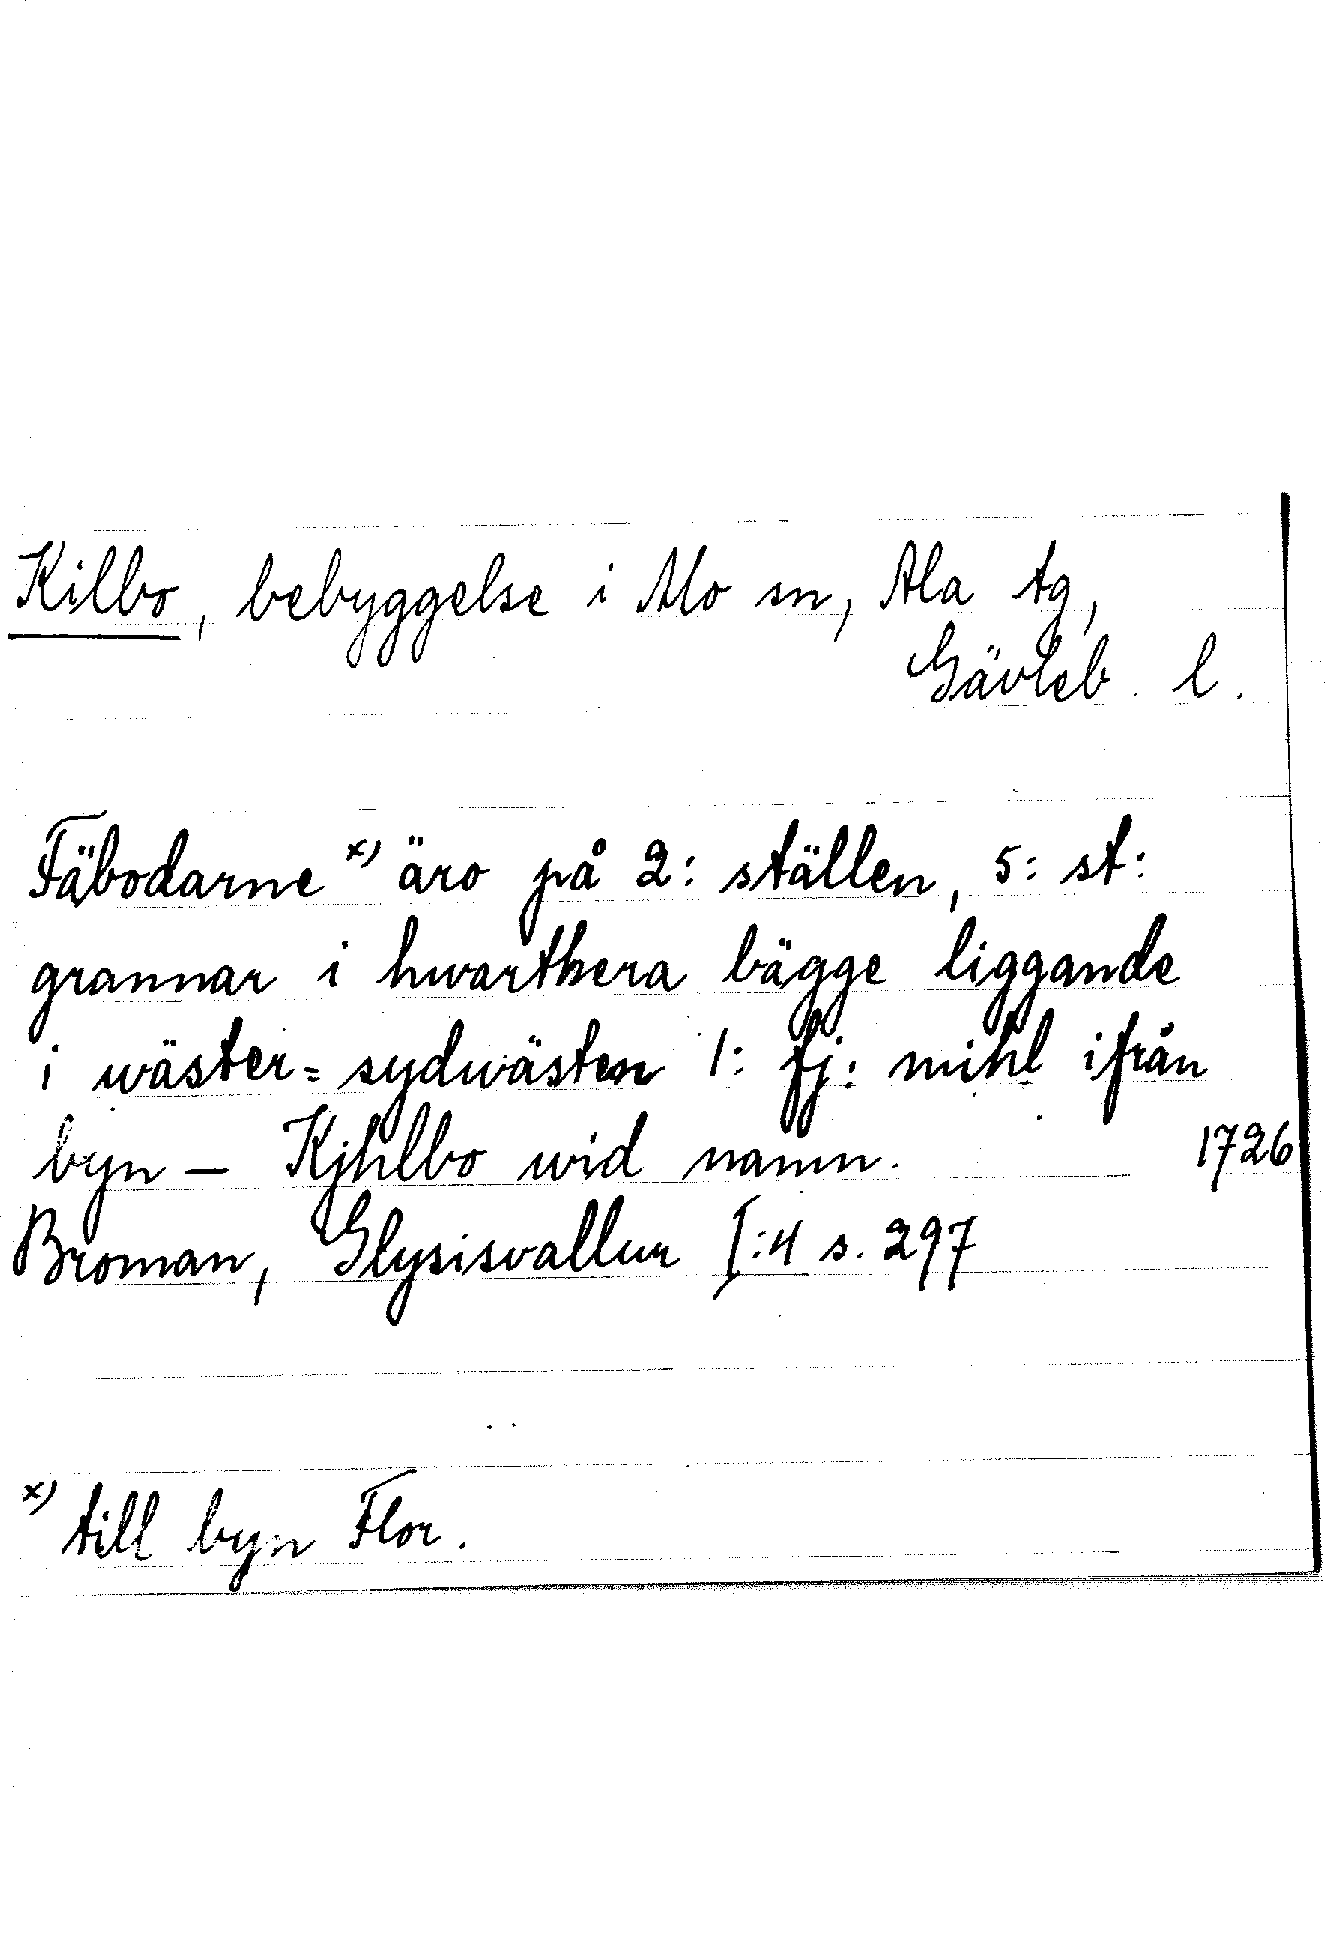 Kilbo, bebyggelse i Mo sn, Ala tg,
Gävleb. l.
Fäbodarne x) äro på 2: ställen, 5: st:
grannar i hwarthera bägge liggande
i wäster=sydwästen 1: fj: mihl ifrån
byn — Kjhlbo wid namn. 1726
Broman, Glysisvallur I:4 s. 297
x) till byn Flor.